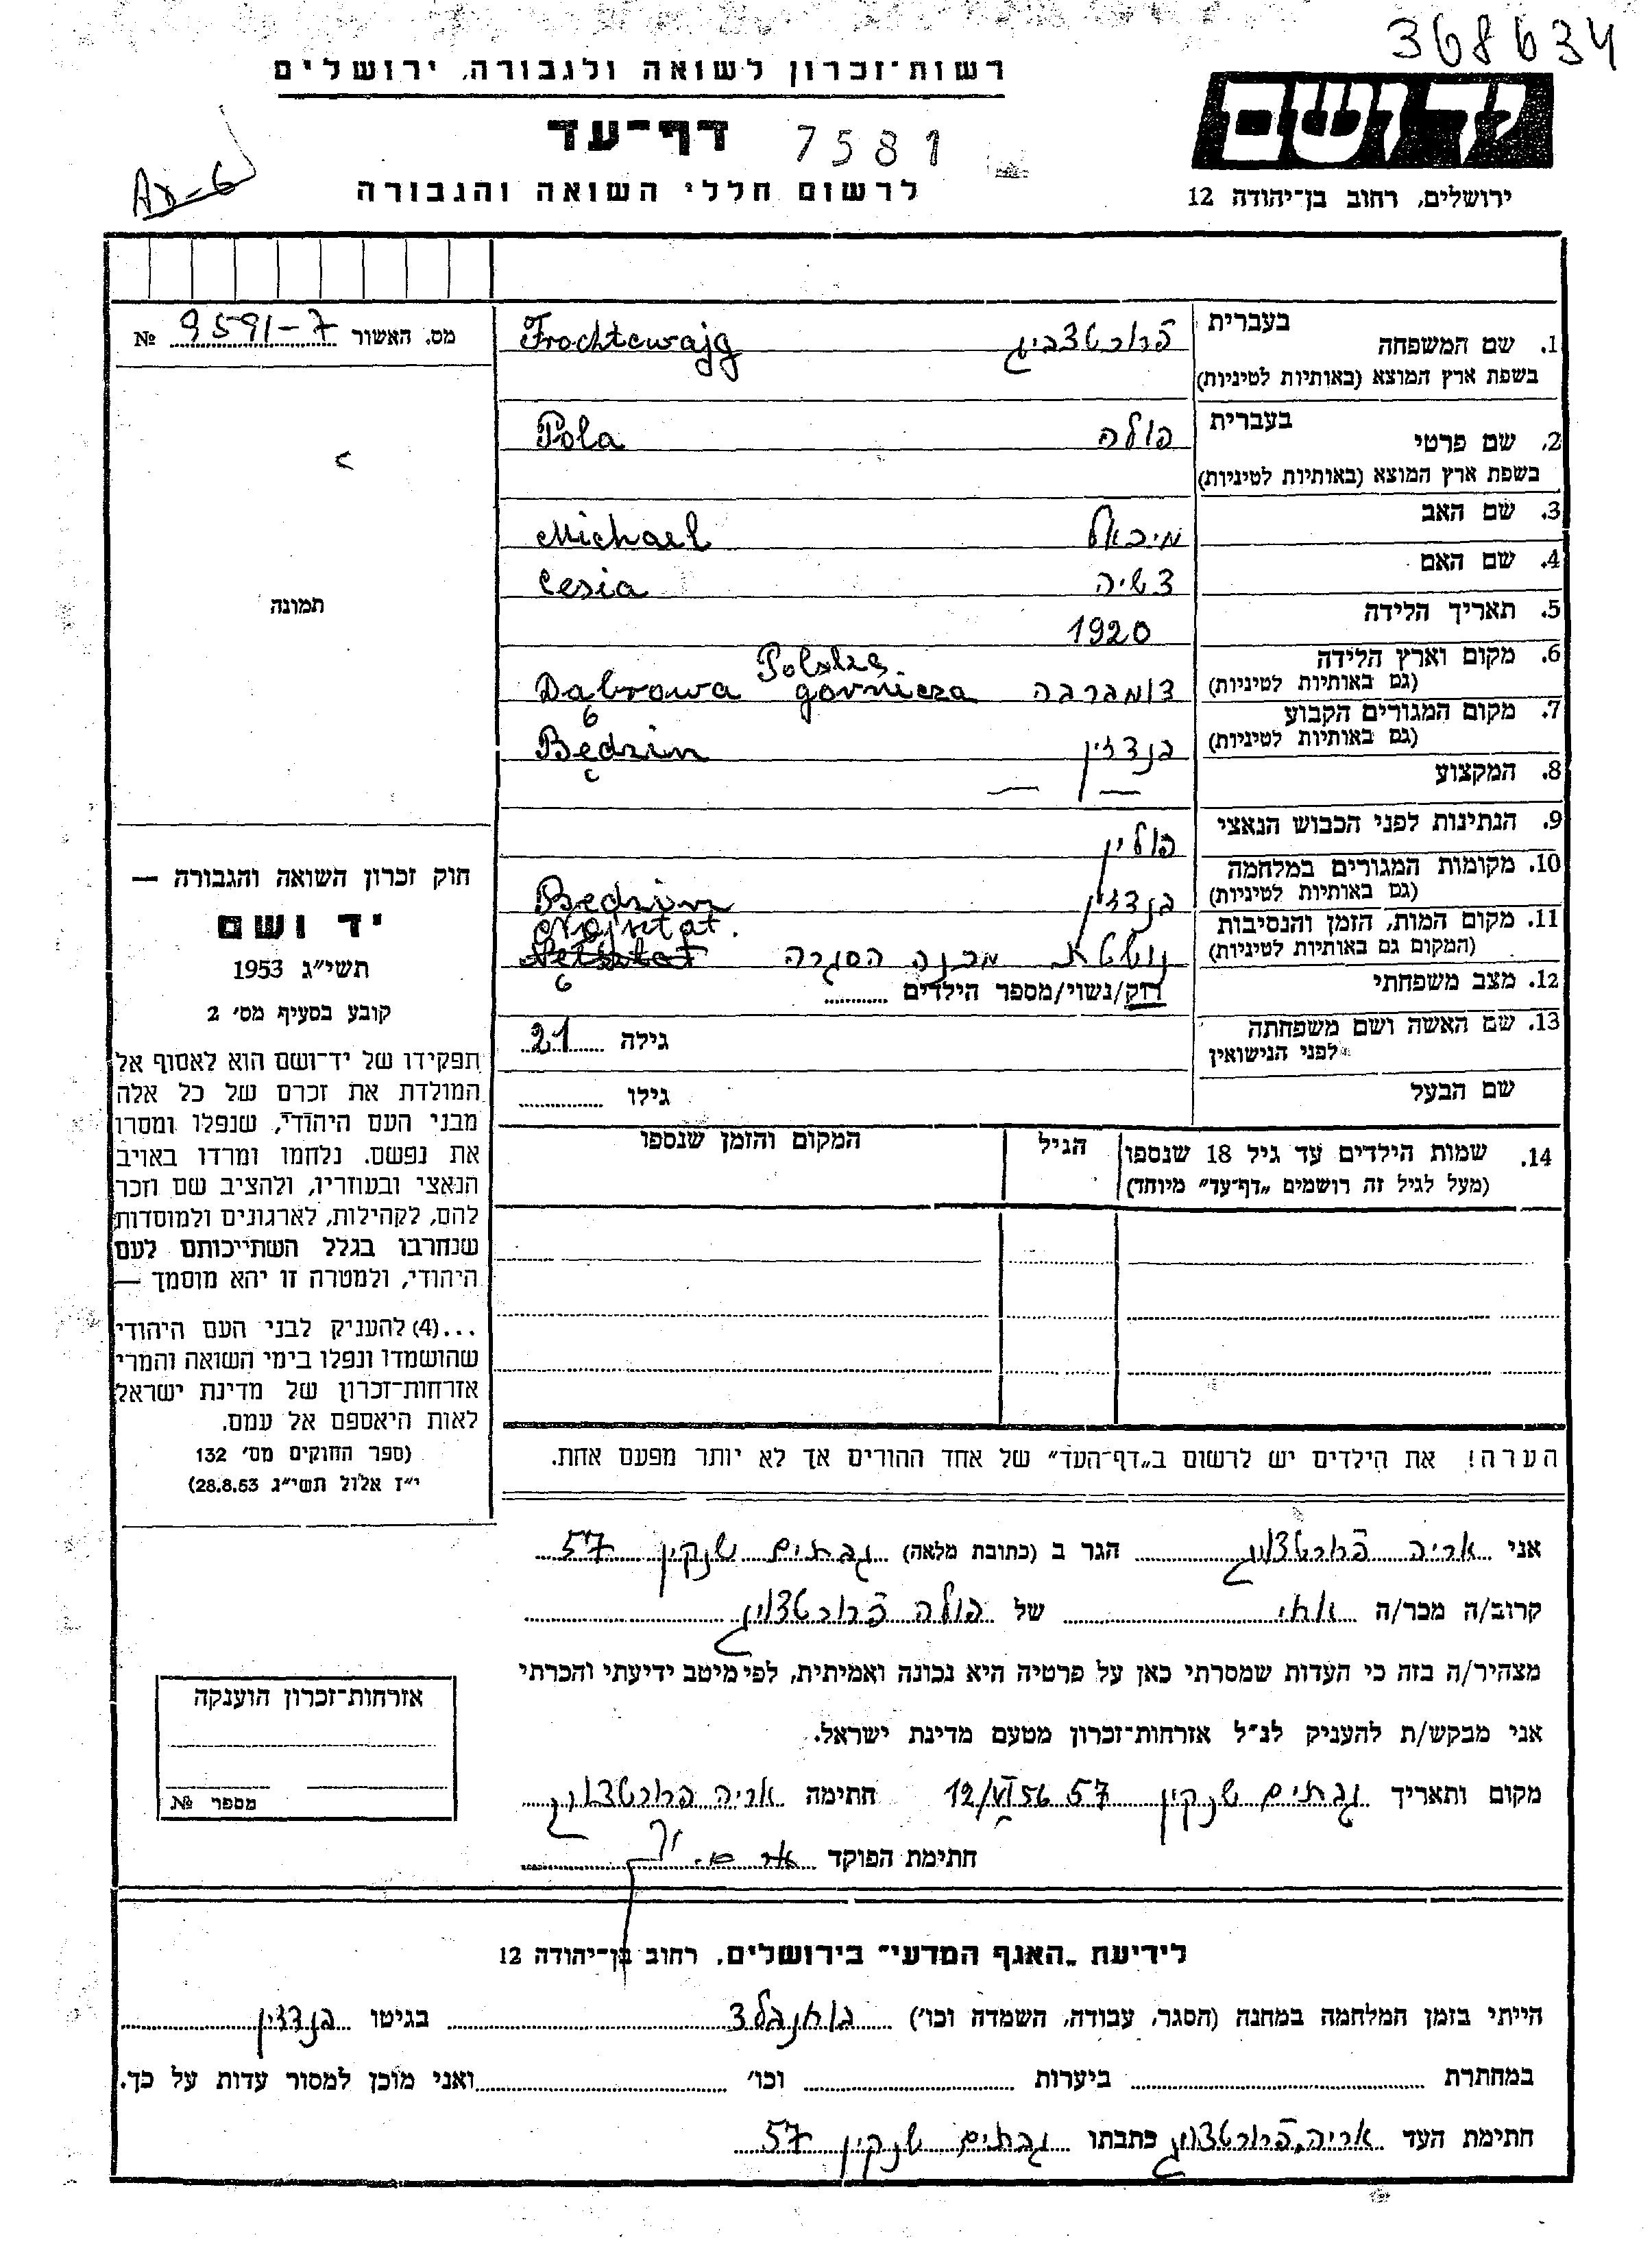 368634
רשות־זכרון לשואה ולגבורה, ירושלים
יד ושם
דף־עד 7581
לרשום חללי השואה והגבורה
ירושלים, רחוב בן־יהודה 12
מס. האשור 9591-7 №
1. שם המשפחה בעברית
בשפת ארץ המוצא (באותיות לטיניות)
Frochtewajg
2. שם פרטי בעברית פולה
בשפת ארץ המוצא (באותיות לטיניות)
Pola
3. שם האב מיכאל Michael
4. שם האם צשיה Cesia
5. תאריך הלידה 1920
6. מקום וארץ הלידה
(גם באותיות לטיניות)
Dąbrowa gornicza
7. מקום המגורים הקבוע
(גם באותיות לטיניות) בנדזין Będzin
8. המקצוע — —
9. הנתינות לפני הכבוש הנאצי פולין
10. מקומות המגורים במלחמה
(גם באותיות לטיניות) בנדזין Będzin
11. מקום המות, הזמן והנסיבות
(המקום גם באותיות לטיניות) מחנה הסגרה
Najsztat.
12. מצב משפחתי רוק/נשוי/מספר הילדים
13. שם האשה ושם משפחתה
לפני הנישואין
גילה 21
שם הבעל גילו
14. שמות הילדים עד גיל 18 שנספו הגיל המקום והזמן שנספו
(מעל לגיל זה רושמים „דף־עד״ מיוחד)
הערה! את הילדים יש לרשום ב„דף־העד״ של אחד ההורים אך לא יותר מפעם אחת.
תמונה
חוק זכרון השואה והגבורה —
יד ושם
תשי״ג 1953
קובע בסעיף מס׳ 2
תפקידו של יד־ושם הוא לאסוף אל
המולדת את זכרם של כל אלה
מבני העם היהודי, שנפלו ומסרו
את נפשם. נלחמו ומרדו באויב
הנאצי ובעוזריו, ולהציב שם וזכר
להם, לקהילות, לארגונים ולמוסדות
שנחרבו בגלל השתייכותם לעם
היהודי, ולמטרה זו יהא מוסמך —
...(4) להעניק לבני העם היהודי
שהושמדו ונפלו בימי השואה והמרי
אזרחות־זכרון של מדינת ישראל
לאות היאספם אל עמם.
(ספר החוקים מס׳ 132
י״ז אלול תשי״ג 28.8.53)
אני אריה פרוכטצוויג הגר ב (כתובת מלאה) גבתים שנקין 57
קרוב/ה מכר/ה אחי של פולה פרוכטצוויג
מצהיר/ה בזה כי העדות שמסרתי כאן על פרטיה היא נכונה ואמיתית, לפי מיטב ידיעתי והכרתי
אני מבקש/ת להעניק לנ״ל אזרחות־זכרון מטעם מדינת ישראל.
מקום ותאריך גבתים שנקין 57 12/VI 56 חתימה אריה פרוכטצוויג
חתימת הפוקד
אזרחות־זכרון הוענקה
מספר №
לידיעת „האגף המדעי״ בירושלים, רחוב בן־יהודה 12
הייתי בזמן המלחמה במחנה (הסגר, עבודה, השמדה וכו׳) בגיטו בנדזין
במחתרת ביערות וכו׳ ואני מוכן למסור עדות על כך.
חתימת העד אריה פרוכטצוויג כתבתו גבתים שנקין 57